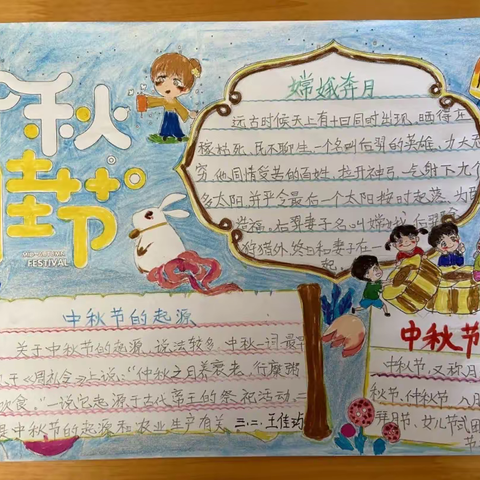 秋
佳节
MID-AUTUMN
FESTIVAL
嫦娥奔月
远古时候天上有十日同时出现,晒得庄
稼枯死,民不聊生,一个名叫后羿的英雄,力大无
穷,他同情受苦的百姓,拉开神弓,一气射下九个
多太阳,并严令最后一个太阳按时起落,为民
造福,后羿妻子名叫嫦娥,后羿
狩猎外,终日和妻子在一
起
中秋节的起源
关于中秋节的起源,说法较多,中秋一词,最早
见于《周礼》上说:“仲秋之日养衰老,行糜粥
饮食。”一说它起源于古代帝王的祭祀活动,二
是中秋节的起源和农业生产有关
三.二.王佳
中秋节
中秋节,又称月
秋节,仲秋节,八月
拜月节、女儿节或团
节